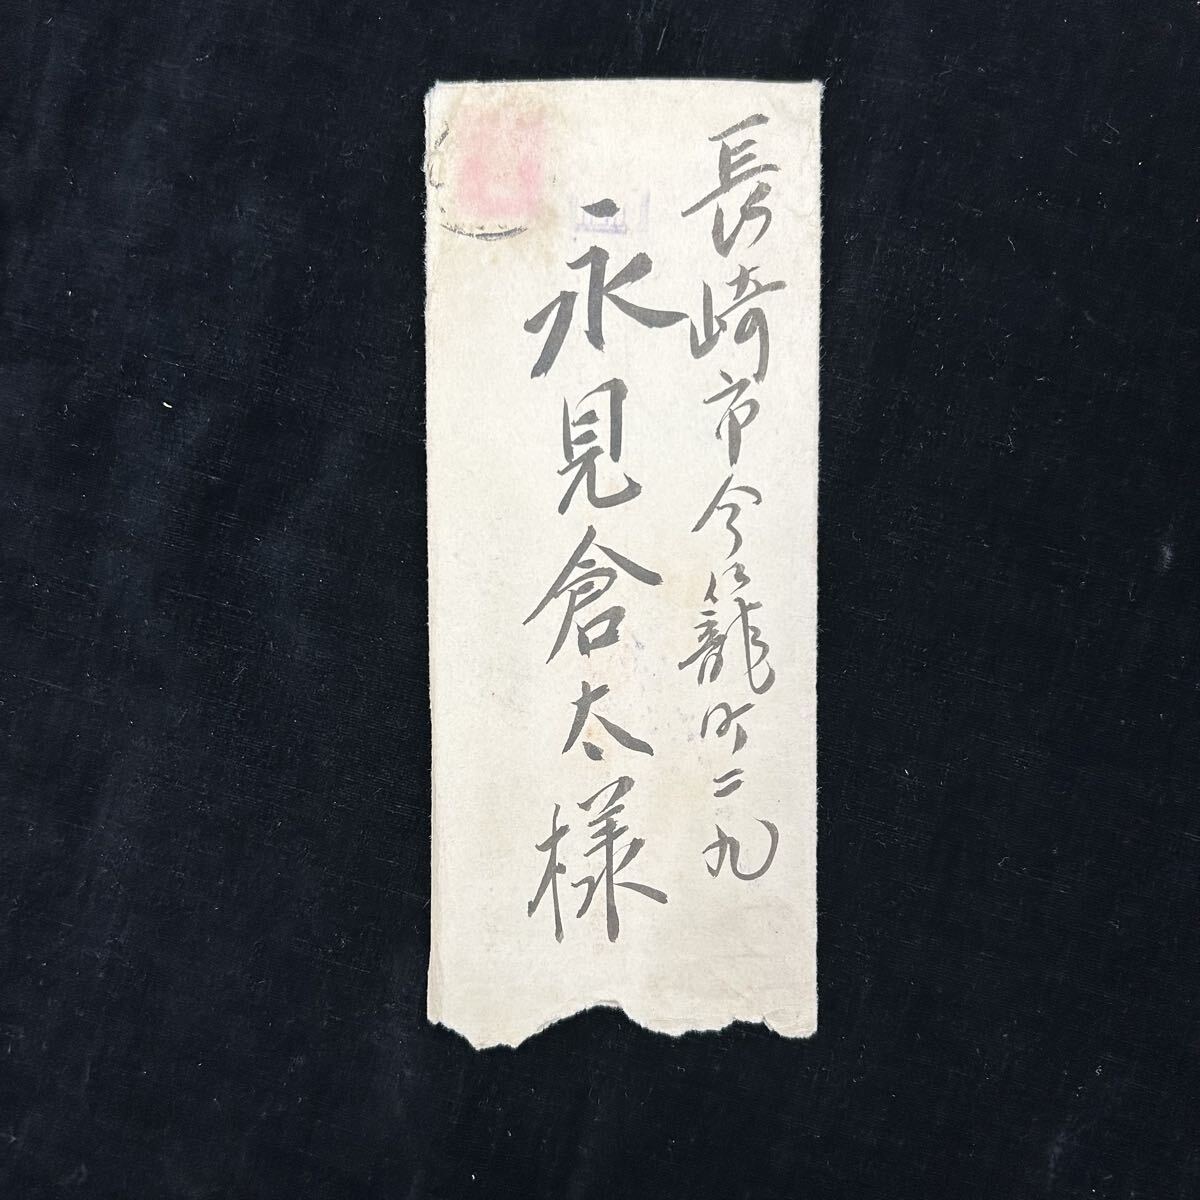 長崎市今籠町二九
永見倉太様